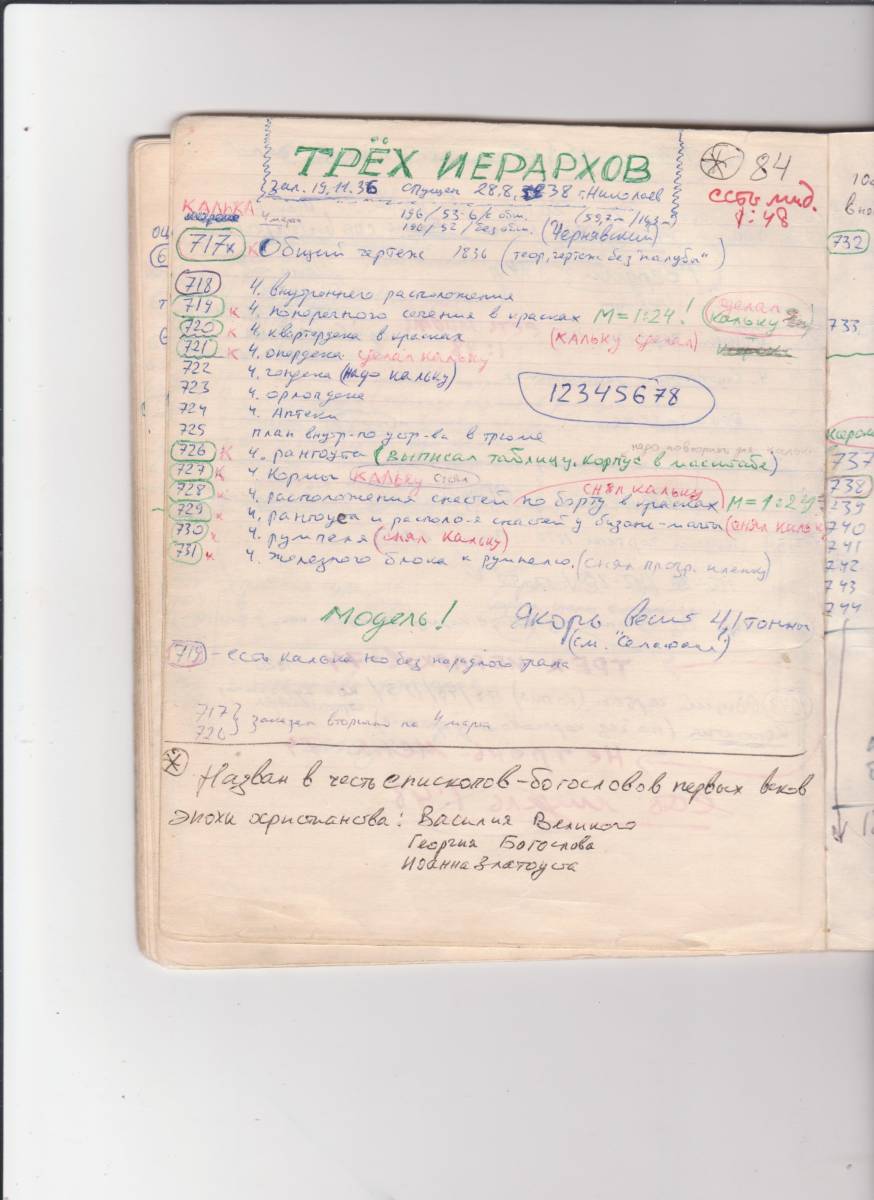 ТРЁХ ИЕРАРХОВ
84
Зал. 19.11.36 спущен 28.8.38 г. Николаев
есть мид.
1:48
КАЛЬКА
4 марта 196/53-6/с обш. (59,7м/16,3м)
190/52/без обш. (Чернявский)
717к к Общий чертеж 1836 (теор. чертеж без "палубы")
718 Ч. внутреннего расположения
719 к Ч. поперечного сечения в красках М=1:24! сделал кальку
720 к Ч. квартердека в красках (кальку сделал)
721 к Ч. опердека сделал кальку
722 Ч. гондека (надо кальку)
723 Ч. орлопдека
724 Ч. Аптеки
12345678
725 план внутр-го устр-ва в трюме
726 к Ч. рангоута (выписал таблицу. корпус в масштабе)
727 к Ч. Кормы кальку снял
728 к Ч. расположения снастей по борту в красках М=1:24
снял кальку
729 к Ч. рангоута и располо-я снастей у бизань-мачты (снял кальку
730 к Ч. румпеля (снял кальку)
731 к Ч. железного блока к румпелю. (снял прозр. пленку)
Модель! Якорь весит 4,1 тонны
(см. "Селафаил")
719 - есть калька но без парадного трапа
717 } заказан вторично на 4 марта
726
Назван в честь епископов-богословов первых веков
эпохи христианства: Василия Великого
Георгия Богослова
Иоанна Златоуста
732
733
737
738
739
740
741
742
743
744